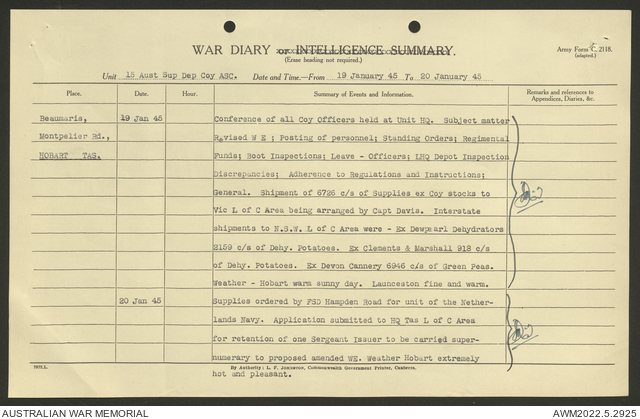 WAR DIARY or INTELLIGENCE SUMMARY.
(Erase heading not required.)
Army Form C. 2118.
(adapted.)
Unit 15 Aust Sup Dep Coy ASC. Date and Time.—From 19 January 45 to 20 January 45
Place. Date. Hour. Summary of Events and Information. Remarks and references to
Appendices, Diaries, &c.
Beaumaris, 19 Jan 45 Conference of all Coy Officers held at Unit HQ. Subject matter
Montpelier Rd., Revised W E ; Posting of personnel; Standing Orders; Regimental
HOBART TAS. Funds; Boot Inspections; Leave - Officers; LHQ Depot Inspection
Discrepancies; Adherence to Regulations and Instructions;
General. Shipment of 6726 c/s of Supplies ex Coy stocks to
Vic L of C Area being arranged by Capt Davis. Interstate
shipments to N.S.W. L of C Area were - Ex Dewpearl Dehydrators
2159 c/s of Dehy. Potatoes. Ex Clements & Marshall 918 c/s
of Dehy. Potatoes. Ex Devon Cannery 6946 c/s of Green Peas.
Weather - Hobart warm sunny day. Launceston fine and warm.
20 Jan 45 Supplies ordered by FSD Hampden Road for unit of the Nether-
lands Navy. Application submitted to HQ Tas L of C Area
for retention of one Sergeant Issuer to be carried super-
numerary to proposed amended WE. Weather Hobart extremely
hot and pleasant.
By Authority: L. F. Johnston, Commonwealth Government Printer, Canberra.
AUSTRALIAN WAR MEMORIAL
AWM2022.5.2925